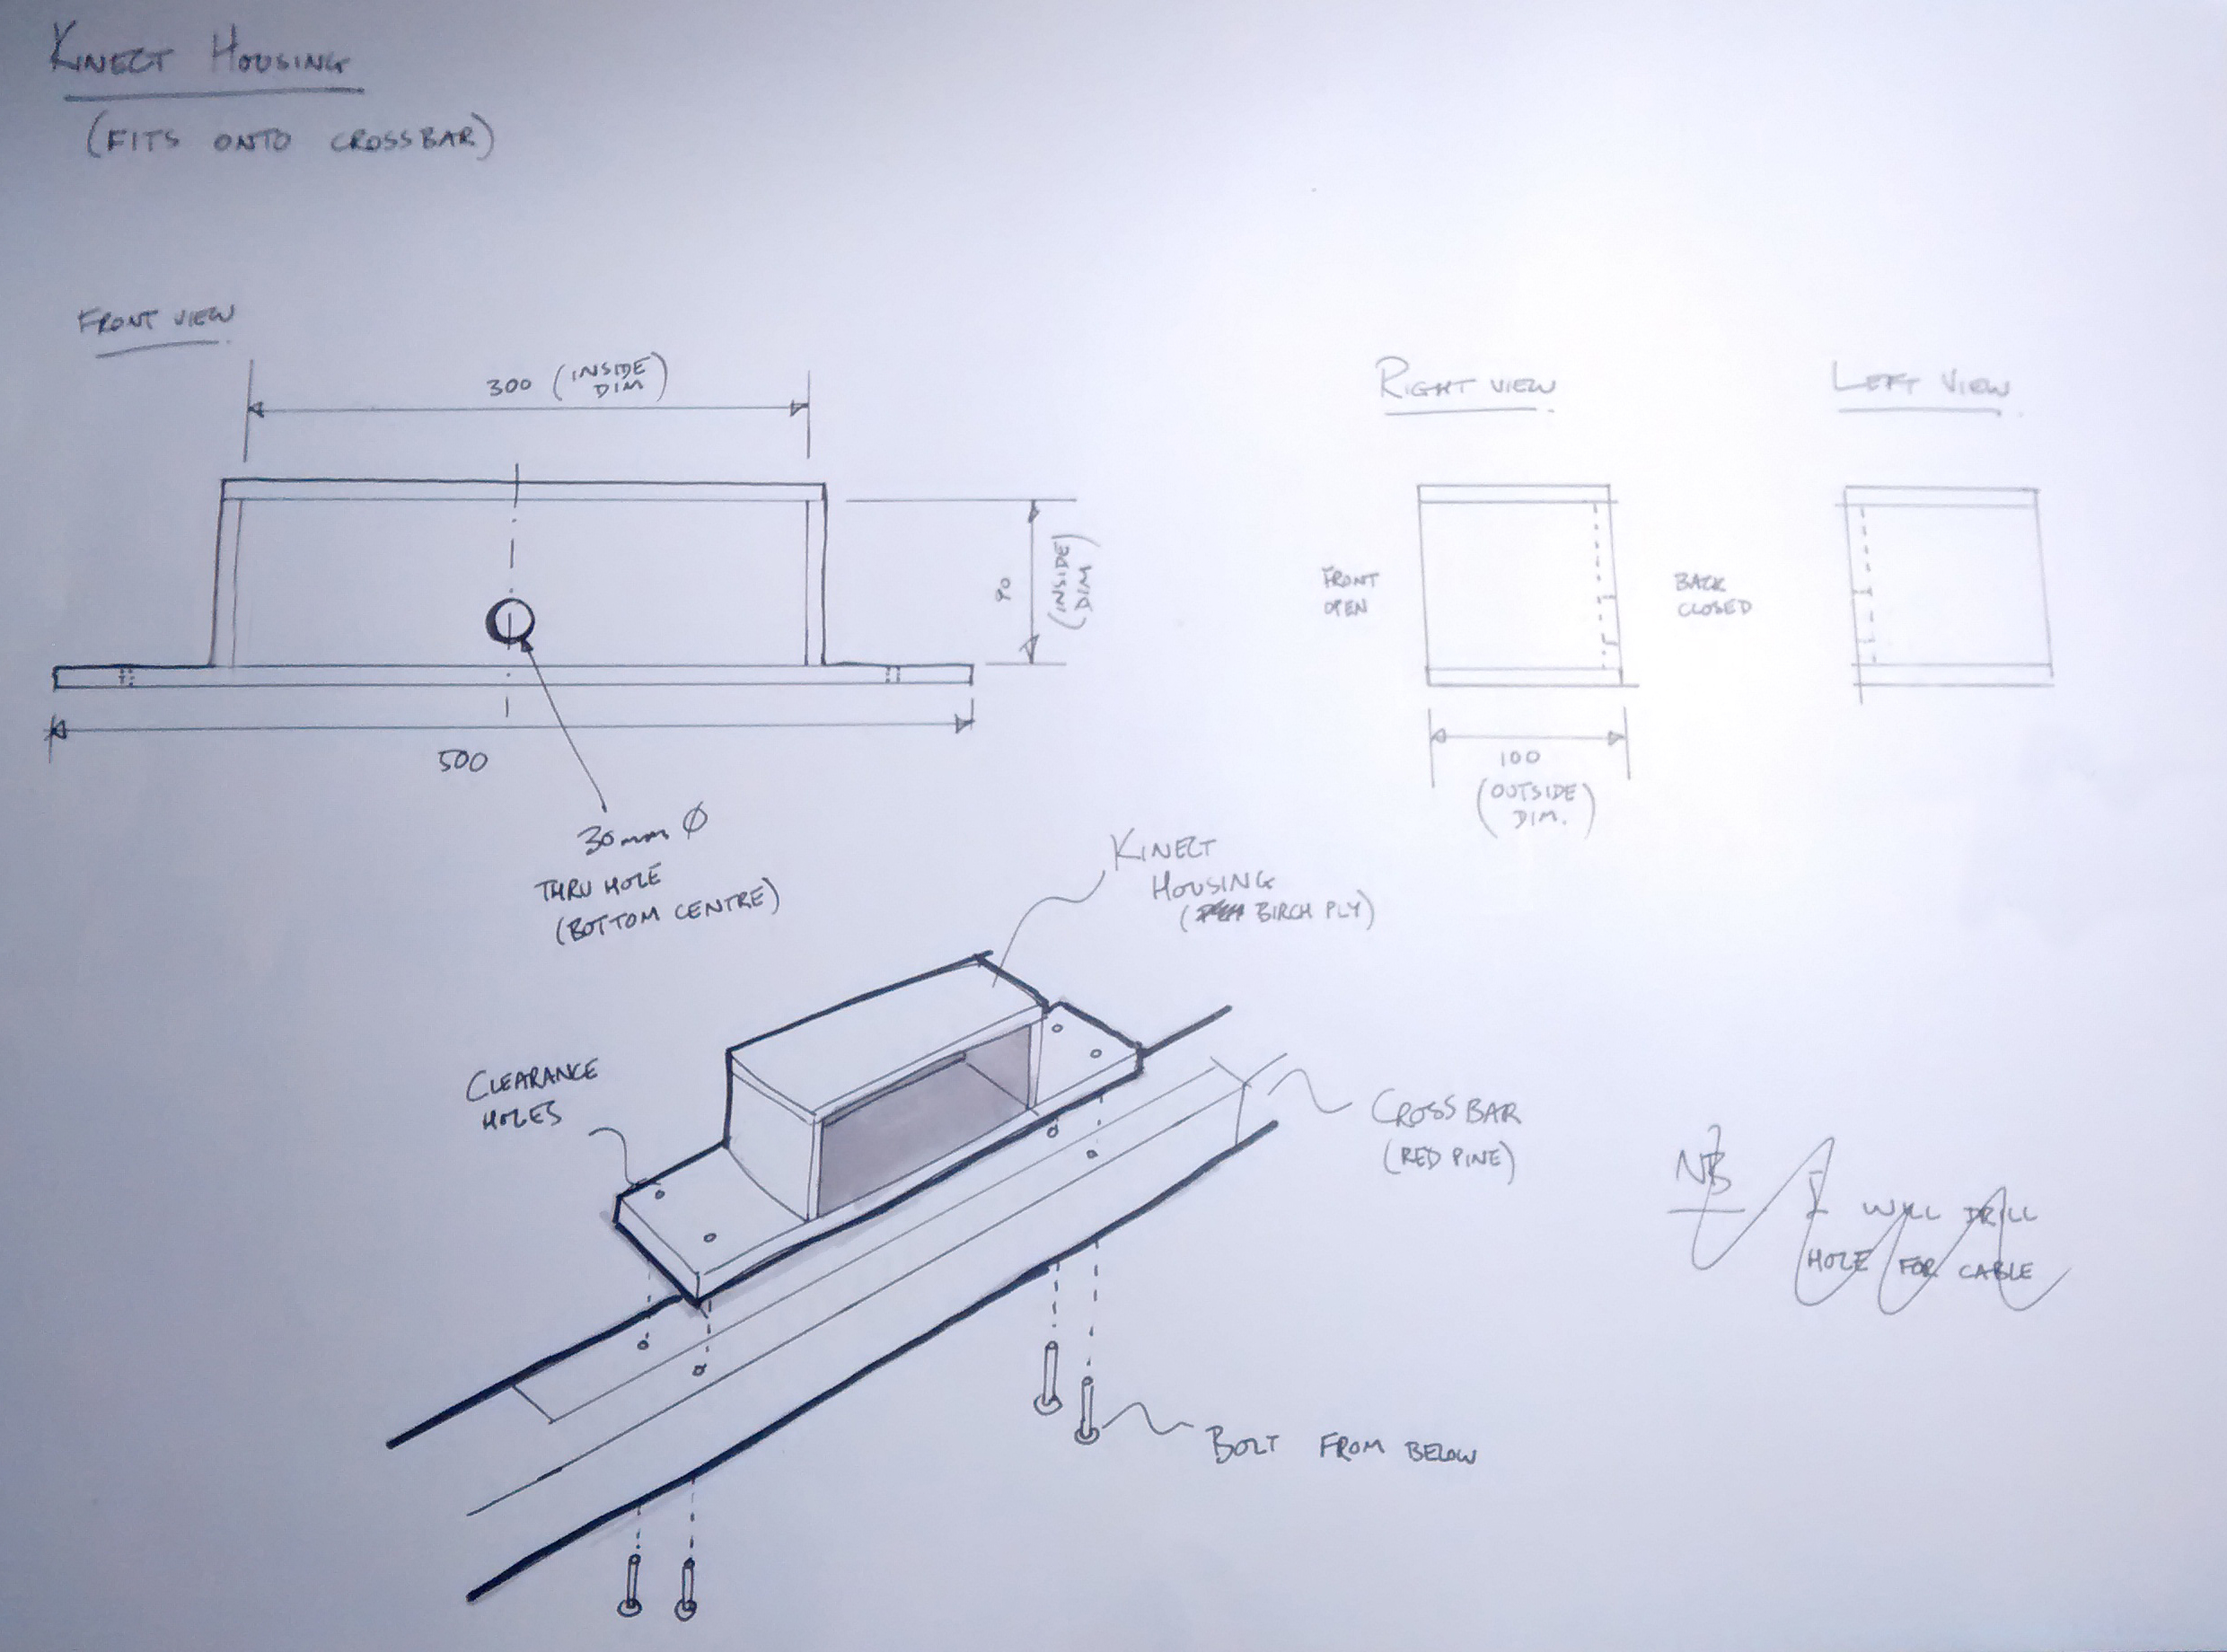 KINECT HOUSING
(FITS ONTO CROSSBAR)
FRONT VIEW
300 (INSIDE
DIM)
90
(INSIDE
DIM)
500
30mm Ø
THRU HOLE
(BOTTOM CENTRE)
RIGHT VIEW
LEFT VIEW
FRONT
OPEN
BACK
CLOSED
100
(OUTSIDE
DIM.)
KINECT
HOUSING
(BIRCH PLY)
CLEARANCE
HOLES
CROSSBAR
(RED PINE)
NB I WILL DRILL
HOLE FOR CABLE
BOLT FROM BELOW